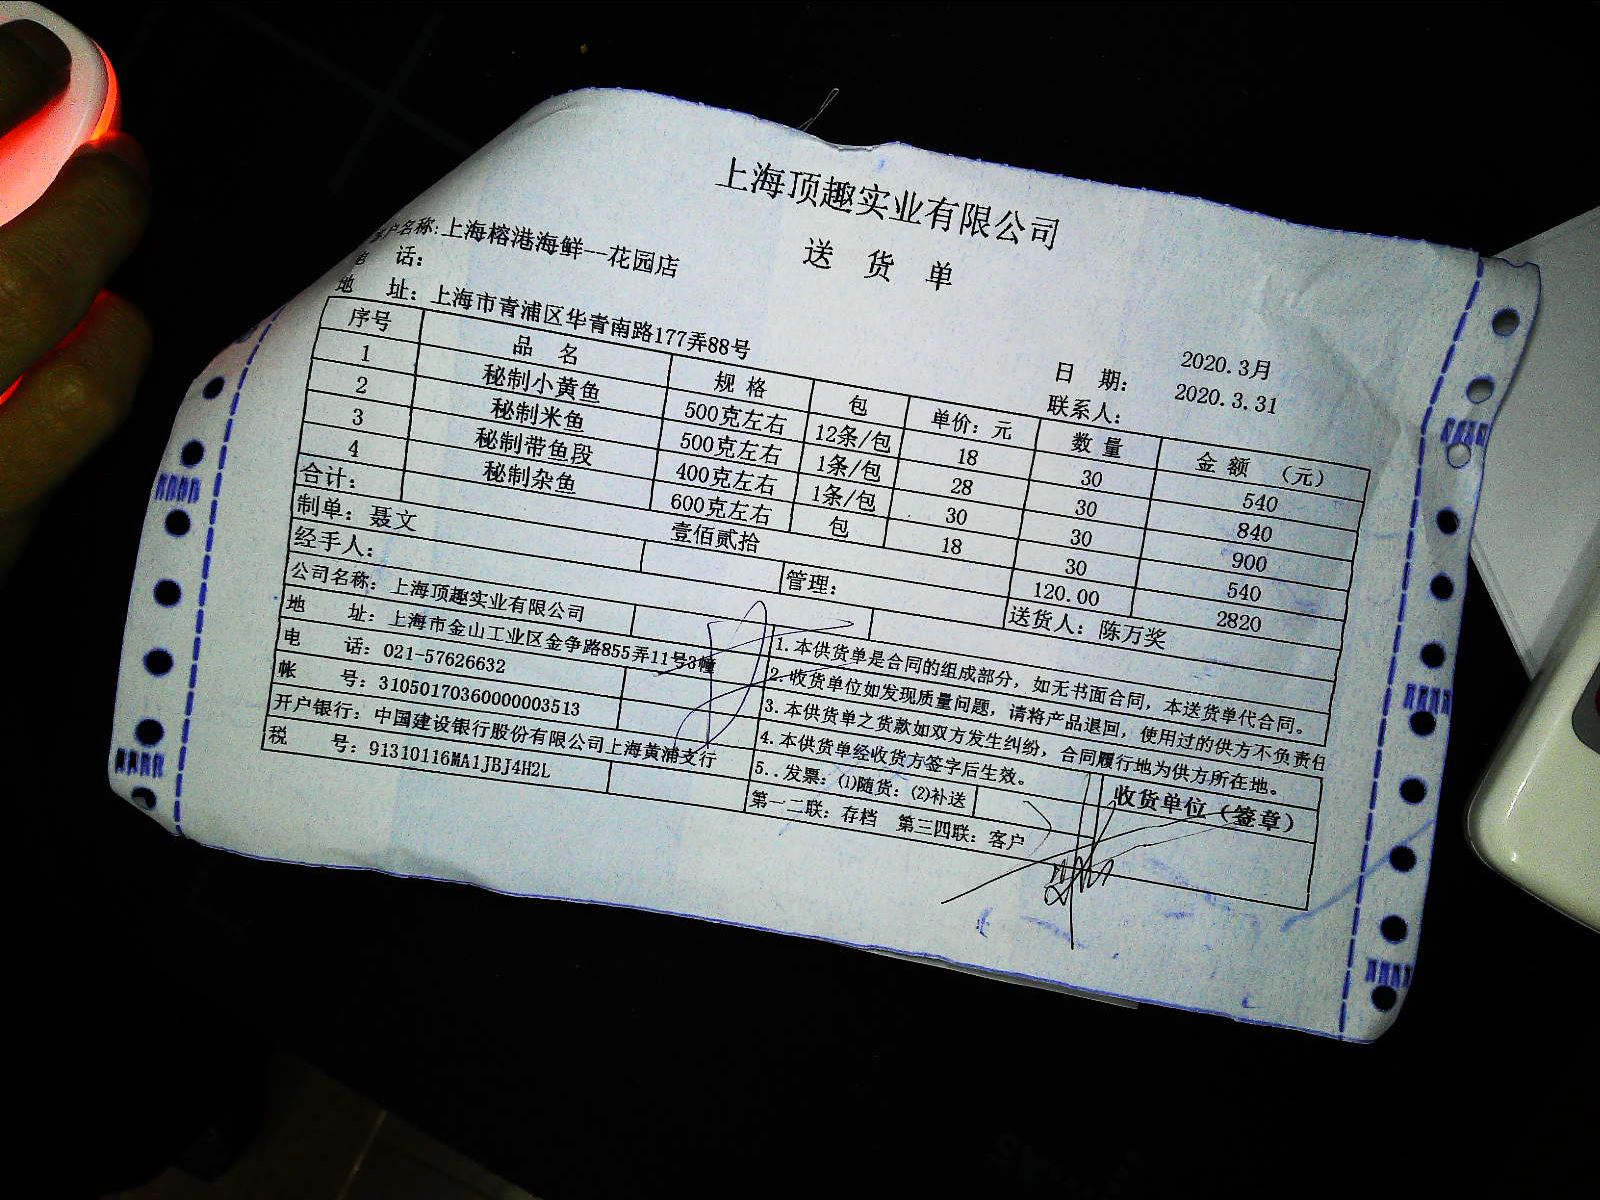 上海顶趣实业有限公司
送 货 单
客户名称:上海榕港海鲜--花园店
电 话:
地 址: 上海市青浦区华青南路177弄88号
2020.3月
日 期: 2020.3.31
联系人:
序号 品 名 规 格 包 单价:元 数 量 金 额 (元)
1 秘制小黄鱼 500克左右 12条/包 18 30 540
2 秘制米鱼 500克左右 1条/包 28 30 840
3 秘制带鱼段 400克左右 1条/包 30 30 900
4 秘制杂鱼 600克左右 包 18 30 540
合计: 壹佰贰拾 120.00 2820
制单: 聂文 管理: 送货人: 陈万奖
经手人:
公司名称: 上海顶趣实业有限公司
地 址: 上海市金山工业区金争路855弄11号3幢
电 话: 021-57626632
帐 号: 31050170360000003513
开户银行: 中国建设银行股份有限公司上海黄浦支行
税 号: 91310116MA1JBJ4H2L
1.本供货单是合同的组成部分, 如无书面合同, 本送货单代合同。
2.收货单位如发现质量问题, 请将产品退回, 使用过的供方不负责任
3.本供货单之货款如双方发生纠纷, 合同履行地为供方所在地。
4.本供货单经收货方签字后生效。
5..发票: ⑴随货: ⑵补送
第一二联: 存档 第三四联: 客户
收货单位 (签章)